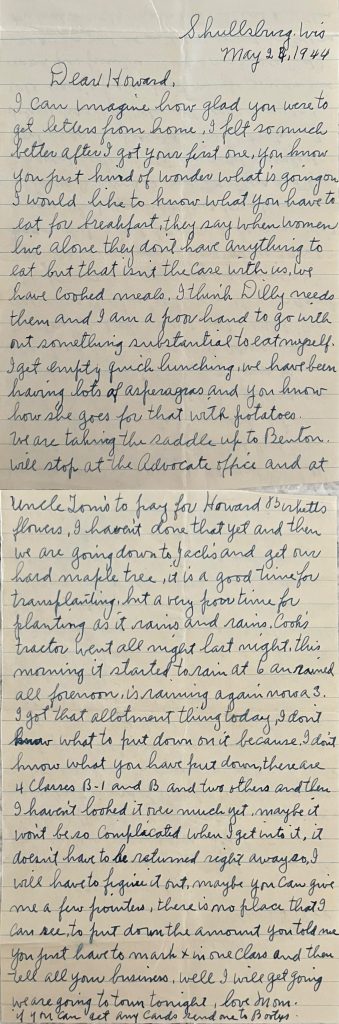 Shullsburg. Wis
May 28, 1944
Dear Howard,
I can imagine how glad you were to
get letters from home, I felt so much
better after I got your first one, you know
you just kind of wonder what is going on
I would like to know what you have to
eat for breakfast, they say when women
live alone they don't have anything to
eat but that isn't the case with us, we
have cooked meals, I think Dilly needs
them and I am a poor hand to go with
out something substantial to eat myself.
I get empty quick lunching, we have been
having lots of asperagras and you know
how she goes for that with potatoes.
We are taking the saddle up to Benton.
will stop at the Advocate office and at
Uncle Tom's to pay for Howard Birketts
flowers, I haven't done that yet and then
we are going down to Jack's and get our
hard maple tree, it is a good time for
transplanting, but a very poor time for
planting as it rains and rains, Cook's
tractor went all night last night, this
morning it started to rain at 6 an rained
all forenoon, is raining again now a 3.
I got that allotment thing today, I don't
know what to put down on it because I don't
know what you have put down, there are
4 Classes B-1 and B and two others and then
I haven't looked it over much yet, maybe it
won't be so complacated when I get into it, it
doesn't have to be returned right away so, I
will have to figure it out, maybe you can give
me a few pointers, there is no place that I
can see, to put down the amount you told me
you just have to mark x in one Class and then
tell all your business, well I will get going
we are going to town tonight, love Mom.
if you can get any Cards send one to Bootys